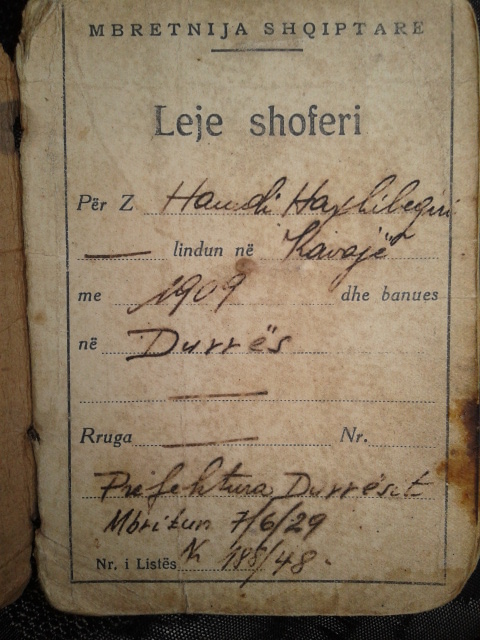 MBRETNIJA SHQIPTARE
Leje shoferi
Për Z Hamdi Haxhibeqiri
lindun në Kavajë
me 1909 dhe banues
në Durrës
Rruga Nr.
Prefektura Durrësit
Mbritun 7/6/29
Nr. i Listës Nr 188/48.